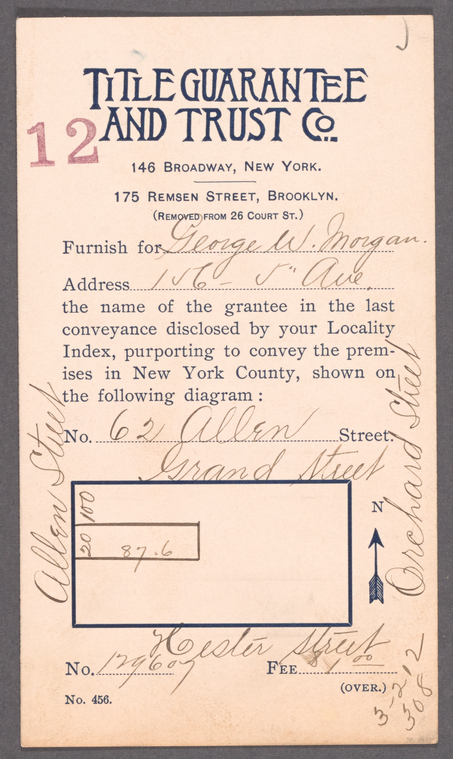 TITLE GUARANTEE
AND TRUST Co.
12
146 BROADWAY, NEW YORK.
175 REMSEN STREET, BROOKLYN.
(REMOVED FROM 26 COURT ST.)
Furnish for George W. Morgan.
Address 156 – 5" Ave.
the name of the grantee in the last
conveyance disclosed by your Locality
Index, purporting to convey the prem-
ises in New York County, shown on
the following diagram:
No. 62 Allen Street.
Grand Street
Allen Street
100
20
87.6
N
Orchard Street
Hester Street
No. 129607 FEE $1.00
(OVER.)
No. 456.
308